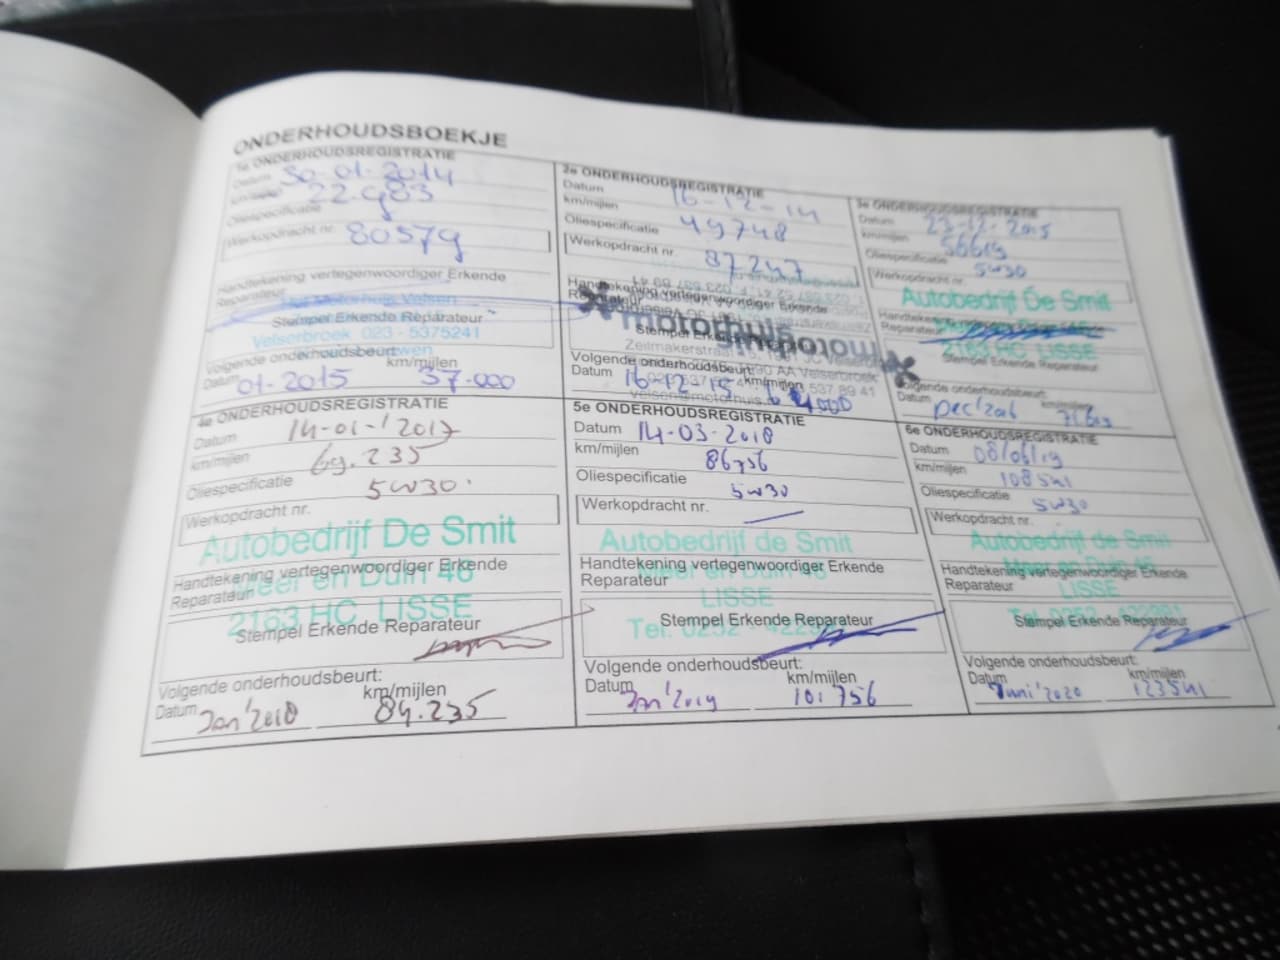 ONDERHOUDSBOEKJE
1e ONDERHOUDSREGISTRATIE
Datum 30-01-2014
km/mijlen 22.983
Oliespecificatie
Werkopdracht nr. 80579
Handtekening vertegenwoordiger Erkende
Reparateur
Stempel Erkende Reparateur
Velserbroek 023 - 5375241
Volgende onderhoudsbeurt:
km/mijlen
Datum 01-2015 37.000
2e ONDERHOUDSREGISTRATIE
Datum 16-12-14
km/mijlen
Oliespecificatie 49748
Werkopdracht nr. 87247
Handtekening vertegenwoordiger Erkende
Reparateur
motorhuis
Stempel
Volgende onderhoudsbeurt:
Datum 16-12-15 km/mijlen
3e ONDERHOUDSREGISTRATIE
Datum 23-12-2015
km/mijlen 56619
Oliespecificatie 5W30
Werkopdracht nr.
Autobedrijf De Smit
Handtekening vertegenwoordiger Erkende
Reparateur
2163 HC LISSE
Stempel Erkende Reparateur
Volgende onderhoudsbeurt:
Datum km/mijlen
Dec'2016 71.619
4e ONDERHOUDSREGISTRATIE
Datum 14-01-'2017
km/mijlen 69.235
Oliespecificatie 5W30
Werkopdracht nr.
Autobedrijf De Smit
Handtekening vertegenwoordiger Erkende
Reparateur en Duin 46
2163 HC LISSE
Stempel Erkende Reparateur
Volgende onderhoudsbeurt:
km/mijlen
Datum Jan'2018 84.235
5e ONDERHOUDSREGISTRATIE
Datum 14-03-2018
km/mijlen 86756
Oliespecificatie 5W30
Werkopdracht nr.
Autobedrijf de Smit
Handtekening vertegenwoordiger Erkende
Reparateur
LISSE
Stempel Erkende Reparateur
Tel. 0252 -
Volgende onderhoudsbeurt:
Datum km/mijlen
Jan'2019 101756
6e ONDERHOUDSREGISTRATIE
Datum 08/06/19
km/mijlen 108541
Oliespecificatie 5W30
Werkopdracht nr.
Autobedrijf de Smit
Handtekening vertegenwoordiger Erkende
Reparateur
LISSE
Stempel Erkende Reparateur
Volgende onderhoudsbeurt:
Datum km/mijlen
Juni'2020 123541